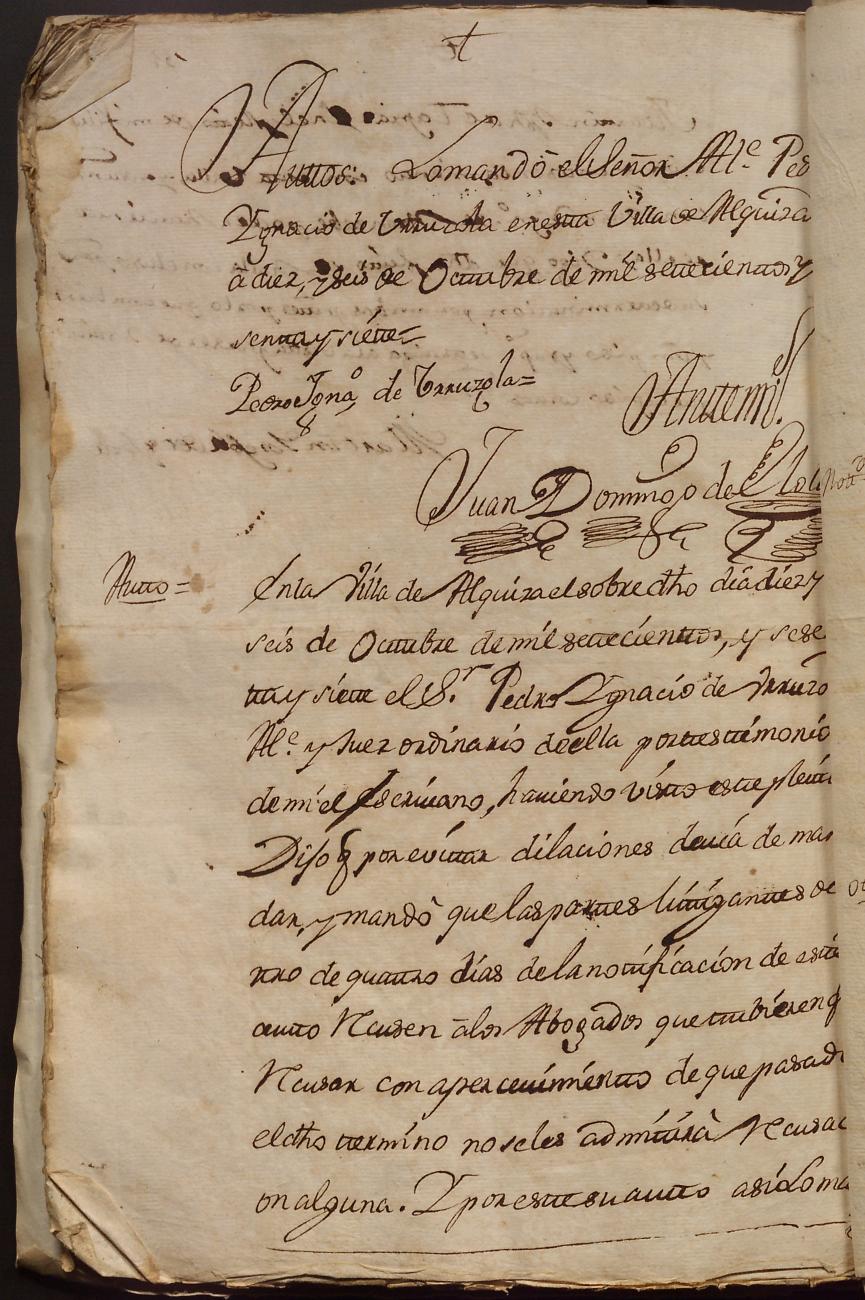 †
Auttos: Lomandò el Señor All.e Ped
Ygnacio de Vrruzola en esta Villa de Alquiza
à diez, y seis de Octtubre de mil settecienttos y
sentta y siette=
Pedro Igna.o de Vrruzola=
Antte mi
Juan Domingo de
Autto= En la Villa de Alquiza el sobre dho dia diez y
seis de Octtubre de mil settecienttos, y sese
tta y siette el S.r Pedro Ygnacio de Vrruzo
All.e y Juez ordinario de ella por testtimonio
de mi el Escriuano, hauiendo vistto estte pleitt
Dijo q por euittar dilaciones deuia de man
dar, y mandò que las parttes littigantes de
ntro de quattro dias de la nottificacion de estte
autto Recusen à los Abogados que ttubieren q
Recusar con aperceuimientto de que pasado
el dho ttermino no se les admittirà Recusac
on alguna. Y por estte su autto asi Lo ma